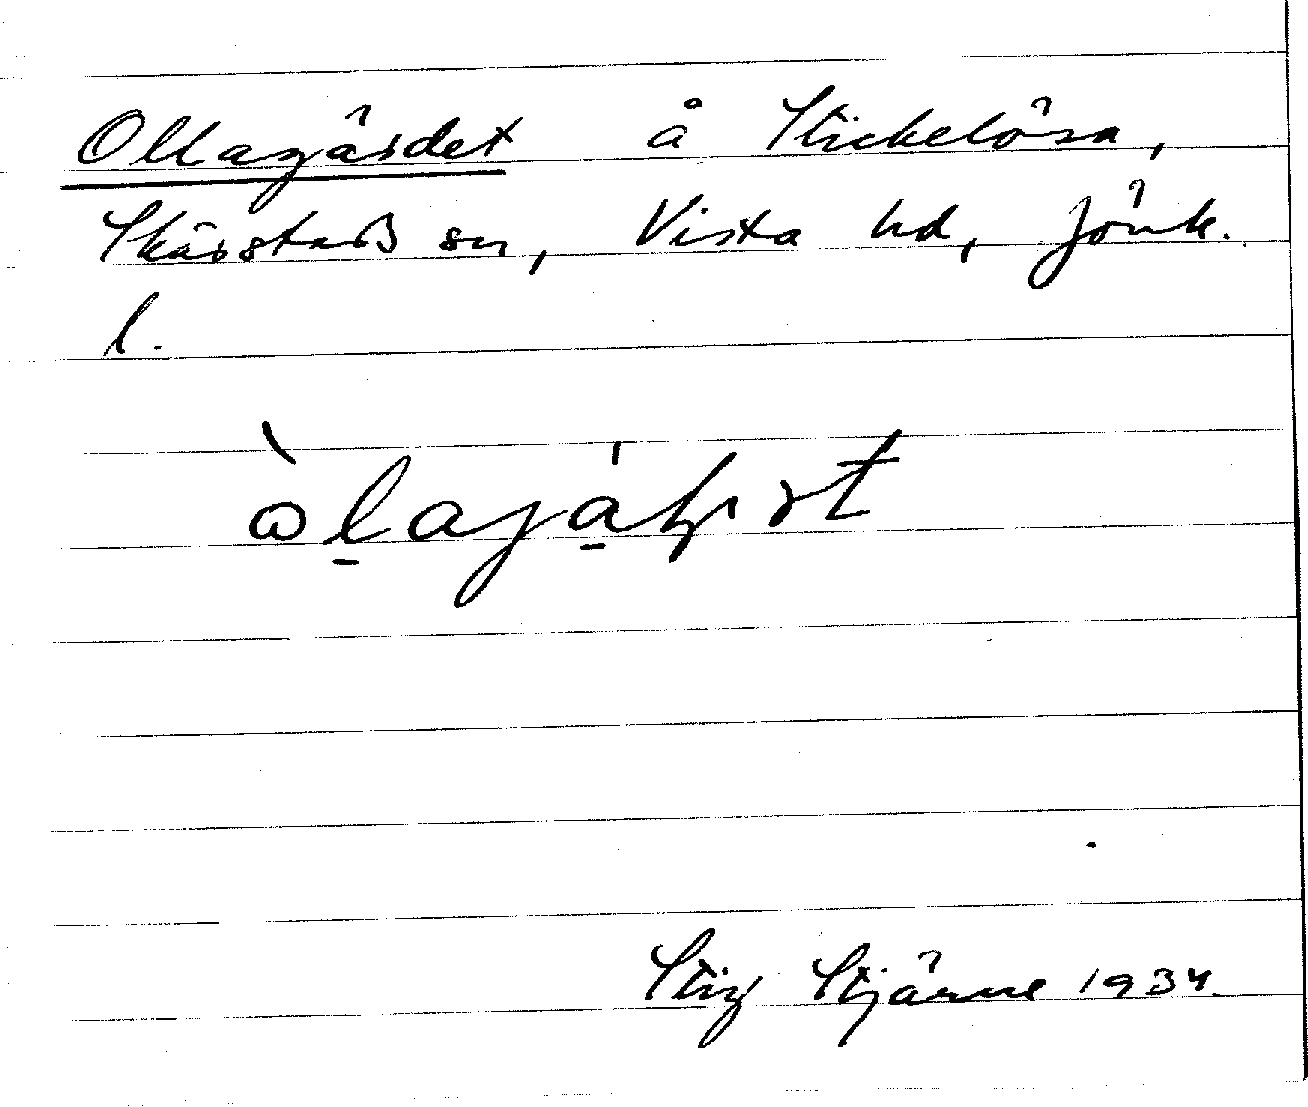 Ollagärdet å Stickelösa,
Skärstads sn, Vista hd, Jönk.
l.
Stig Stjärne 1934